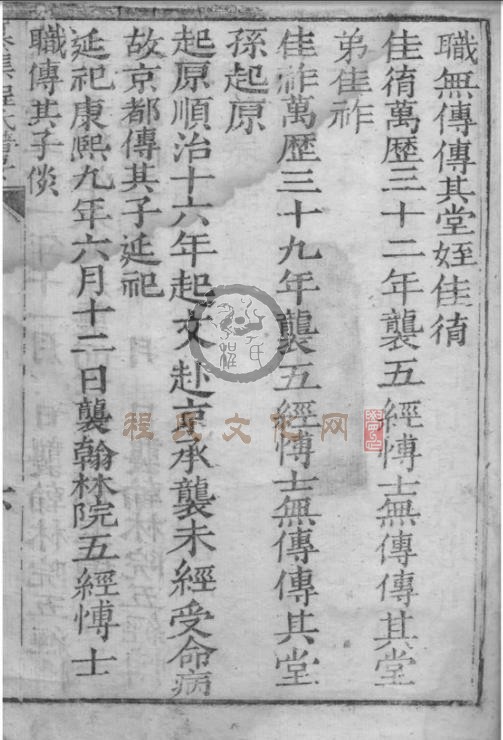 職無傳傳其堂姪佳
佳萬歷三十二年襲五經愽士無傳傳其堂
弟佳祚
佳祚萬歷三十九年襲五經愽士無傳傳其堂
孫起原
起原順治十六年起文赴京承襲未經受命病
故京都傳其子延祀
延祀康熙九年六月十二日襲翰林院五經愽士
職傳其子倓
程氏文化网